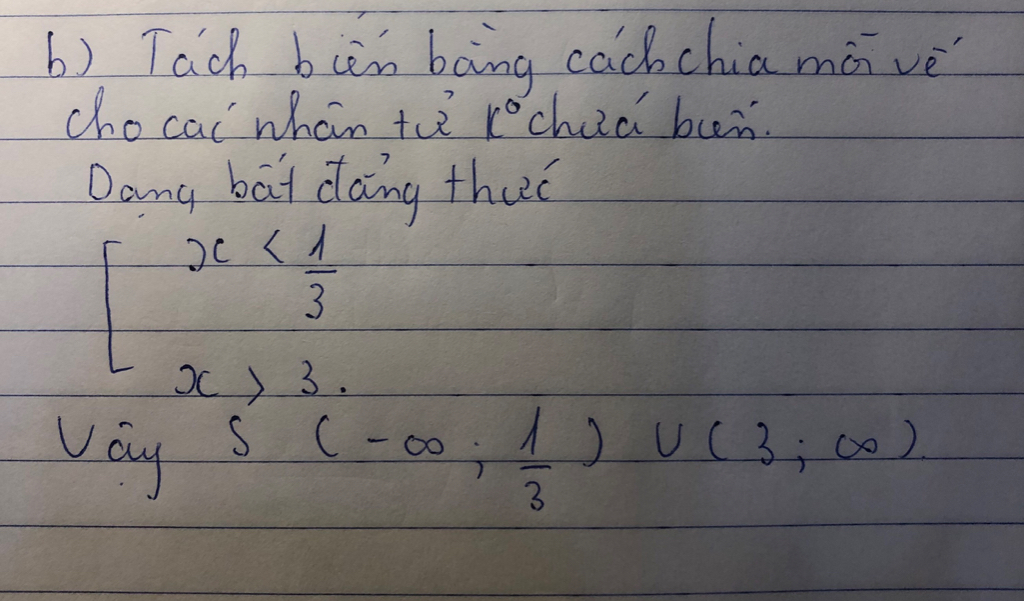 b) Tách biến bằng cách chia mỗi vế
cho các nhân tử k° chứa biến.
Dạng bất đẳng thức
x < 1/3
x > 3.
Vậy S (-∞; 1/3) ∪ (3; ∞).